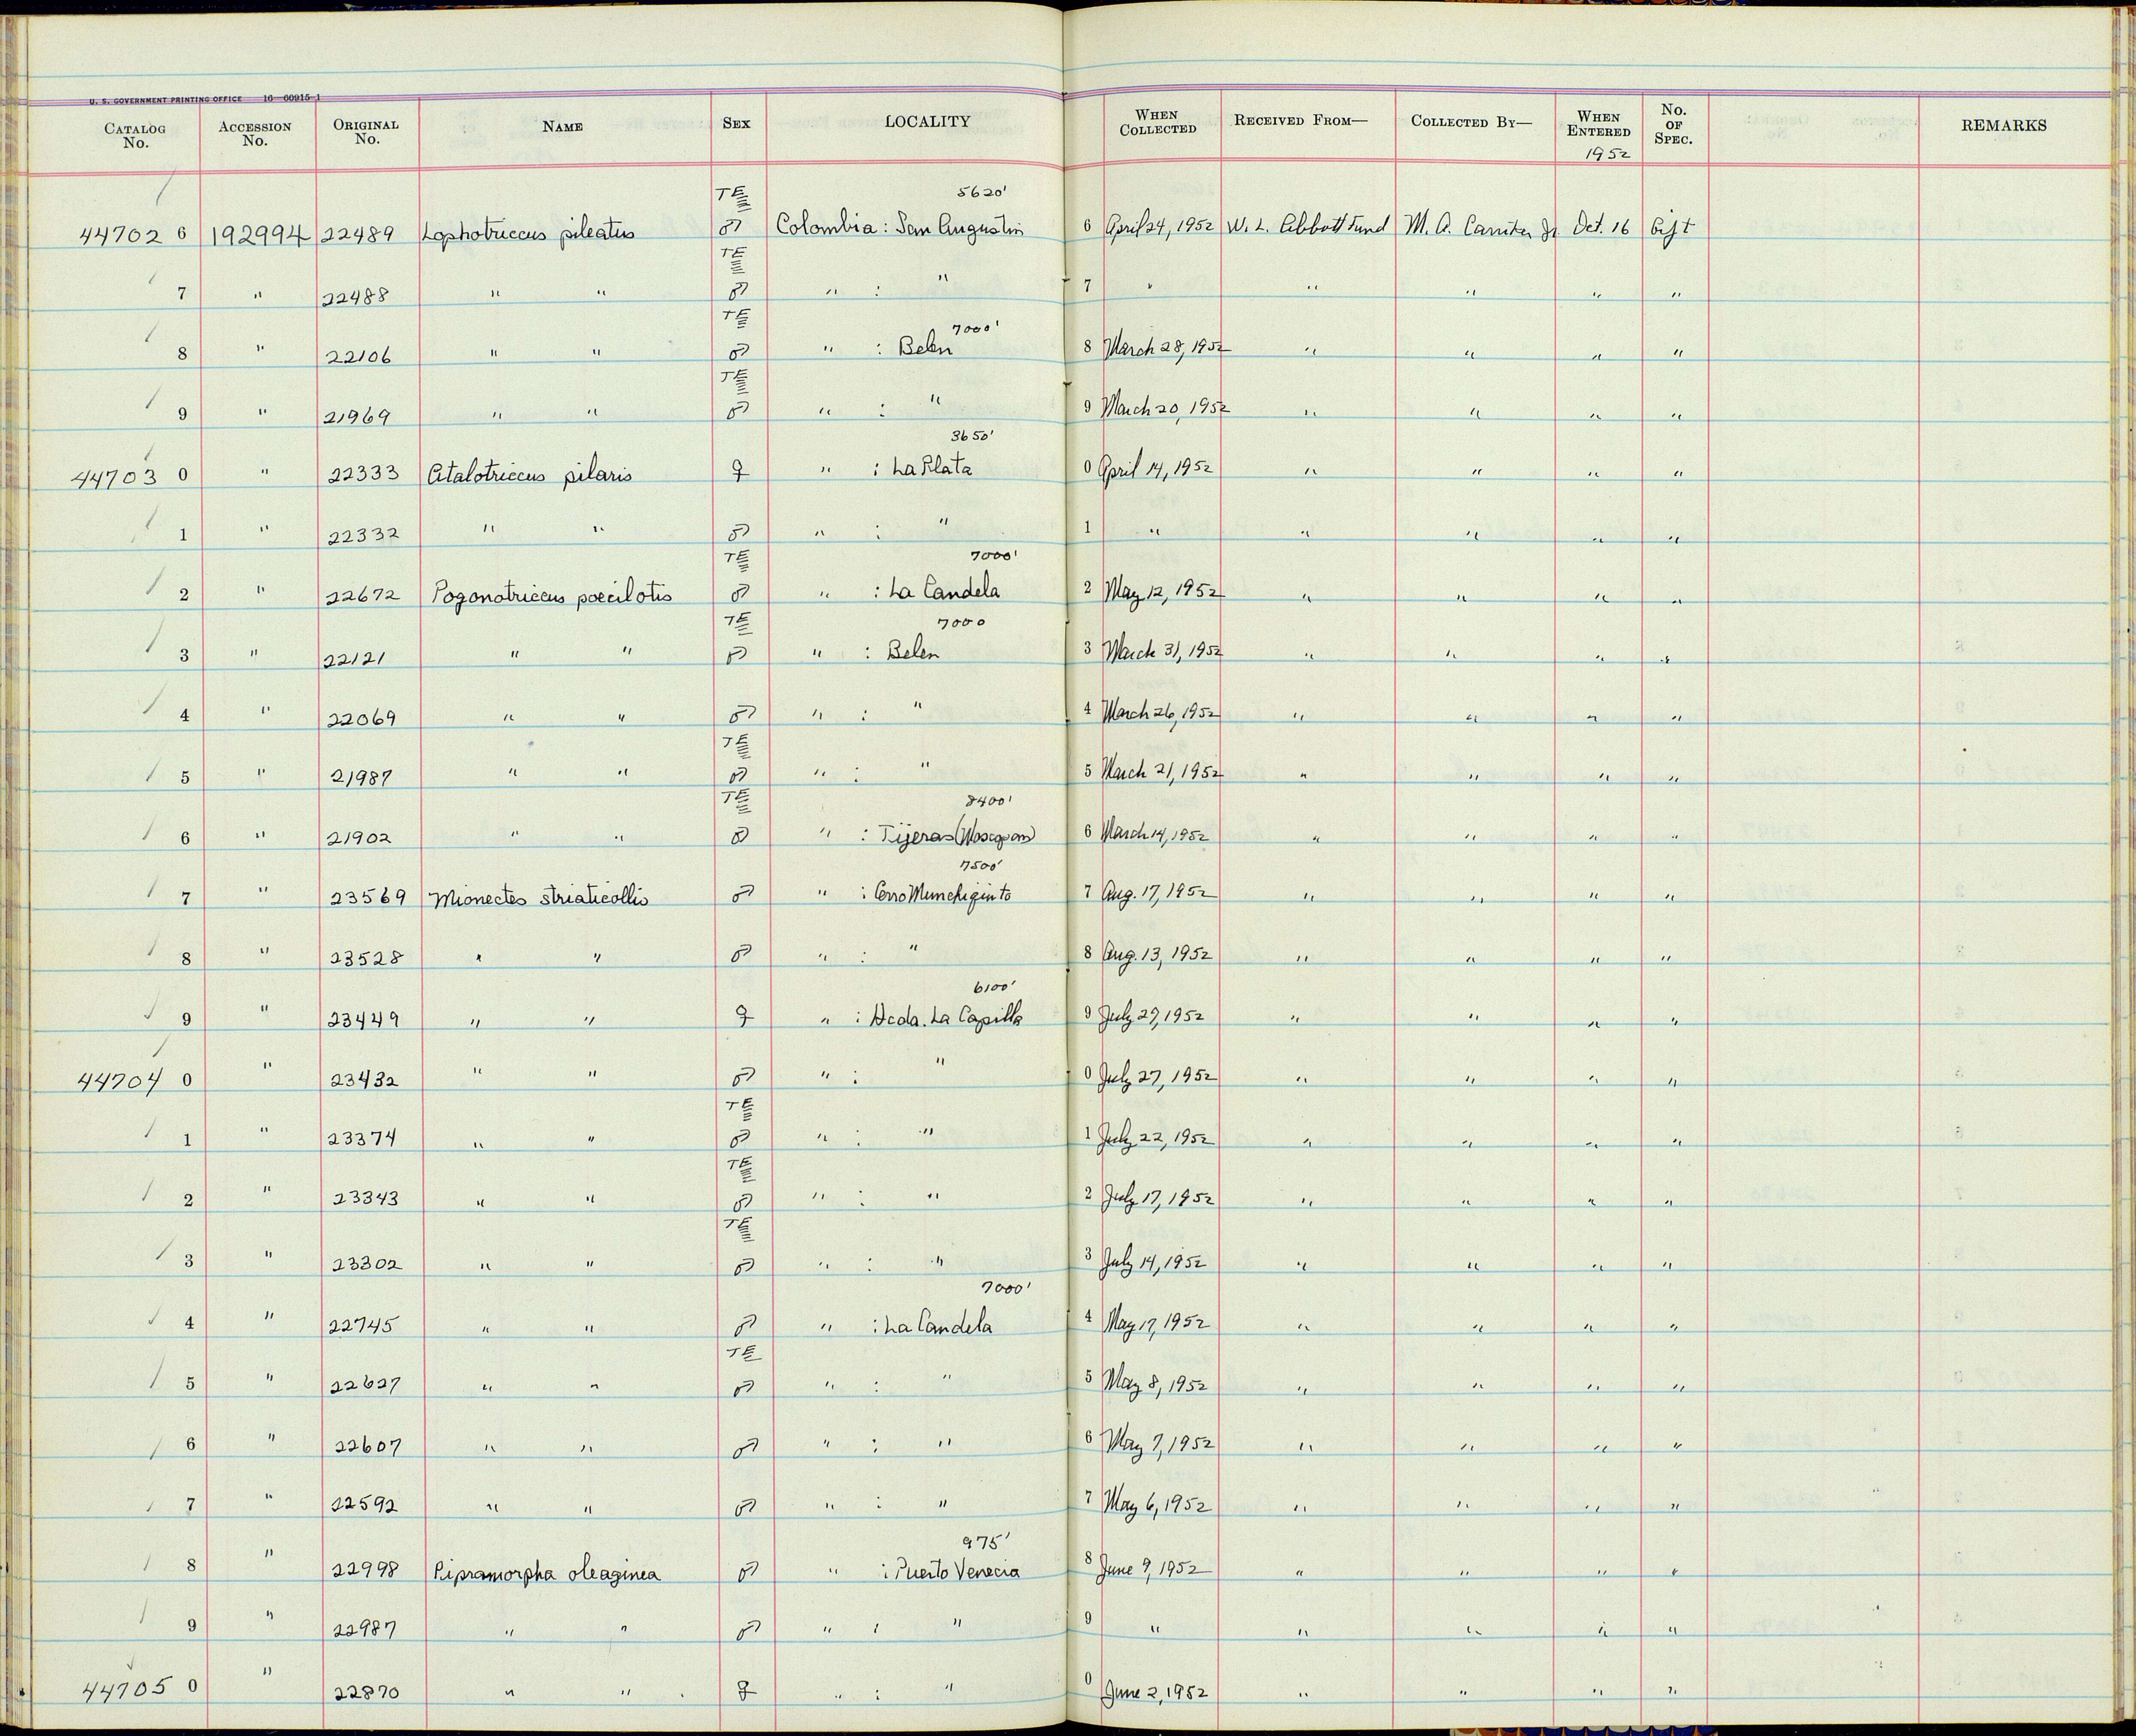 U. S. GOVERNMENT PRINTING OFFICE 16—60915-1
CATALOG No. ACCESSION No. ORIGINAL No. NAME SEX LOCALITY WHEN COLLECTED RECEIVED FROM— COLLECTED BY— WHEN ENTERED No. OF SPEC. REMARKS
1952
TE 5620'
44702 6 192994 22489 Lophotriccus pileatus ♂ Colombia : San Augustin 6 April 24, 1952 W. L. Abbott Fund M. A. Carriker Jr. Oct. 16 Gift
TE
7 " 22488 " " ♂ " : " 7 " " " " "
TE 7000'
8 " 22106 " " ♂ " : Belen 8 March 28, 1952 " " " "
TE
9 " 21969 " " ♂ " : " 9 March 20, 1952 " " " "
3650'
44703 0 " 22333 Atalotriccus pilaris ♀ " : La Plata 0 April 14, 1952 " " " "
1 " 22332 " " ♂ " : " 1 " " " " "
TE 7000'
2 " 22672 Pogonotriccus poecilotis ♂ " : La Candela 2 May 12, 1952 " " " "
TE 7000
3 " 22121 " " ♂ " : Belen 3 March 31, 1952 " " " "
4 " 22069 " " ♂ " : " 4 March 26, 1952 " " " "
TE
5 " 21987 " " ♂ " : " 5 March 21, 1952 " " " "
TE 8400'
6 " 21902 " " ♂ " : Tijeras (Moscopan) 6 March 14, 1952 " " " "
7500'
7 " 23569 Mionectes striaticollis ♂ " : Cerro Munchiquinto 7 Aug. 17, 1952 " " " "
8 " 23528 " " ♂ " : " 8 Aug. 13, 1952 " " " "
6100'
9 " 23449 " " ♀ " : Hcda. La Capilla 9 July 29, 1952 " " " "
44704 0 " 23432 " " ♂ " : " 0 July 27, 1952 " " " "
TE
1 " 23374 " " ♂ " : " 1 July 22, 1952 " " " "
TE
2 " 23343 " " ♂ " : " 2 July 17, 1952 " " " "
TE
3 " 23302 " " ♂ " : " 3 July 14, 1952 " " " "
7000'
4 " 22745 " " ♂ " : La Candela 4 May 17, 1952 " " " "
TE
5 " 22627 " " ♂ " : " 5 May 8, 1952 " " " "
6 " 22607 " " ♂ " : " 6 May 7, 1952 " " " "
7 " 22592 " " ♂ " : " 7 May 6, 1952 " " " "
975'
8 " 22998 Pipramorpha oleaginea ♂ " : Puerto Venecia 8 June 9, 1952 " " " "
9 " 22987 " " ♂ " : " 9 " " " " "
44705 0 " 22870 " " ♀ " : " 0 June 2, 1952 " " " "